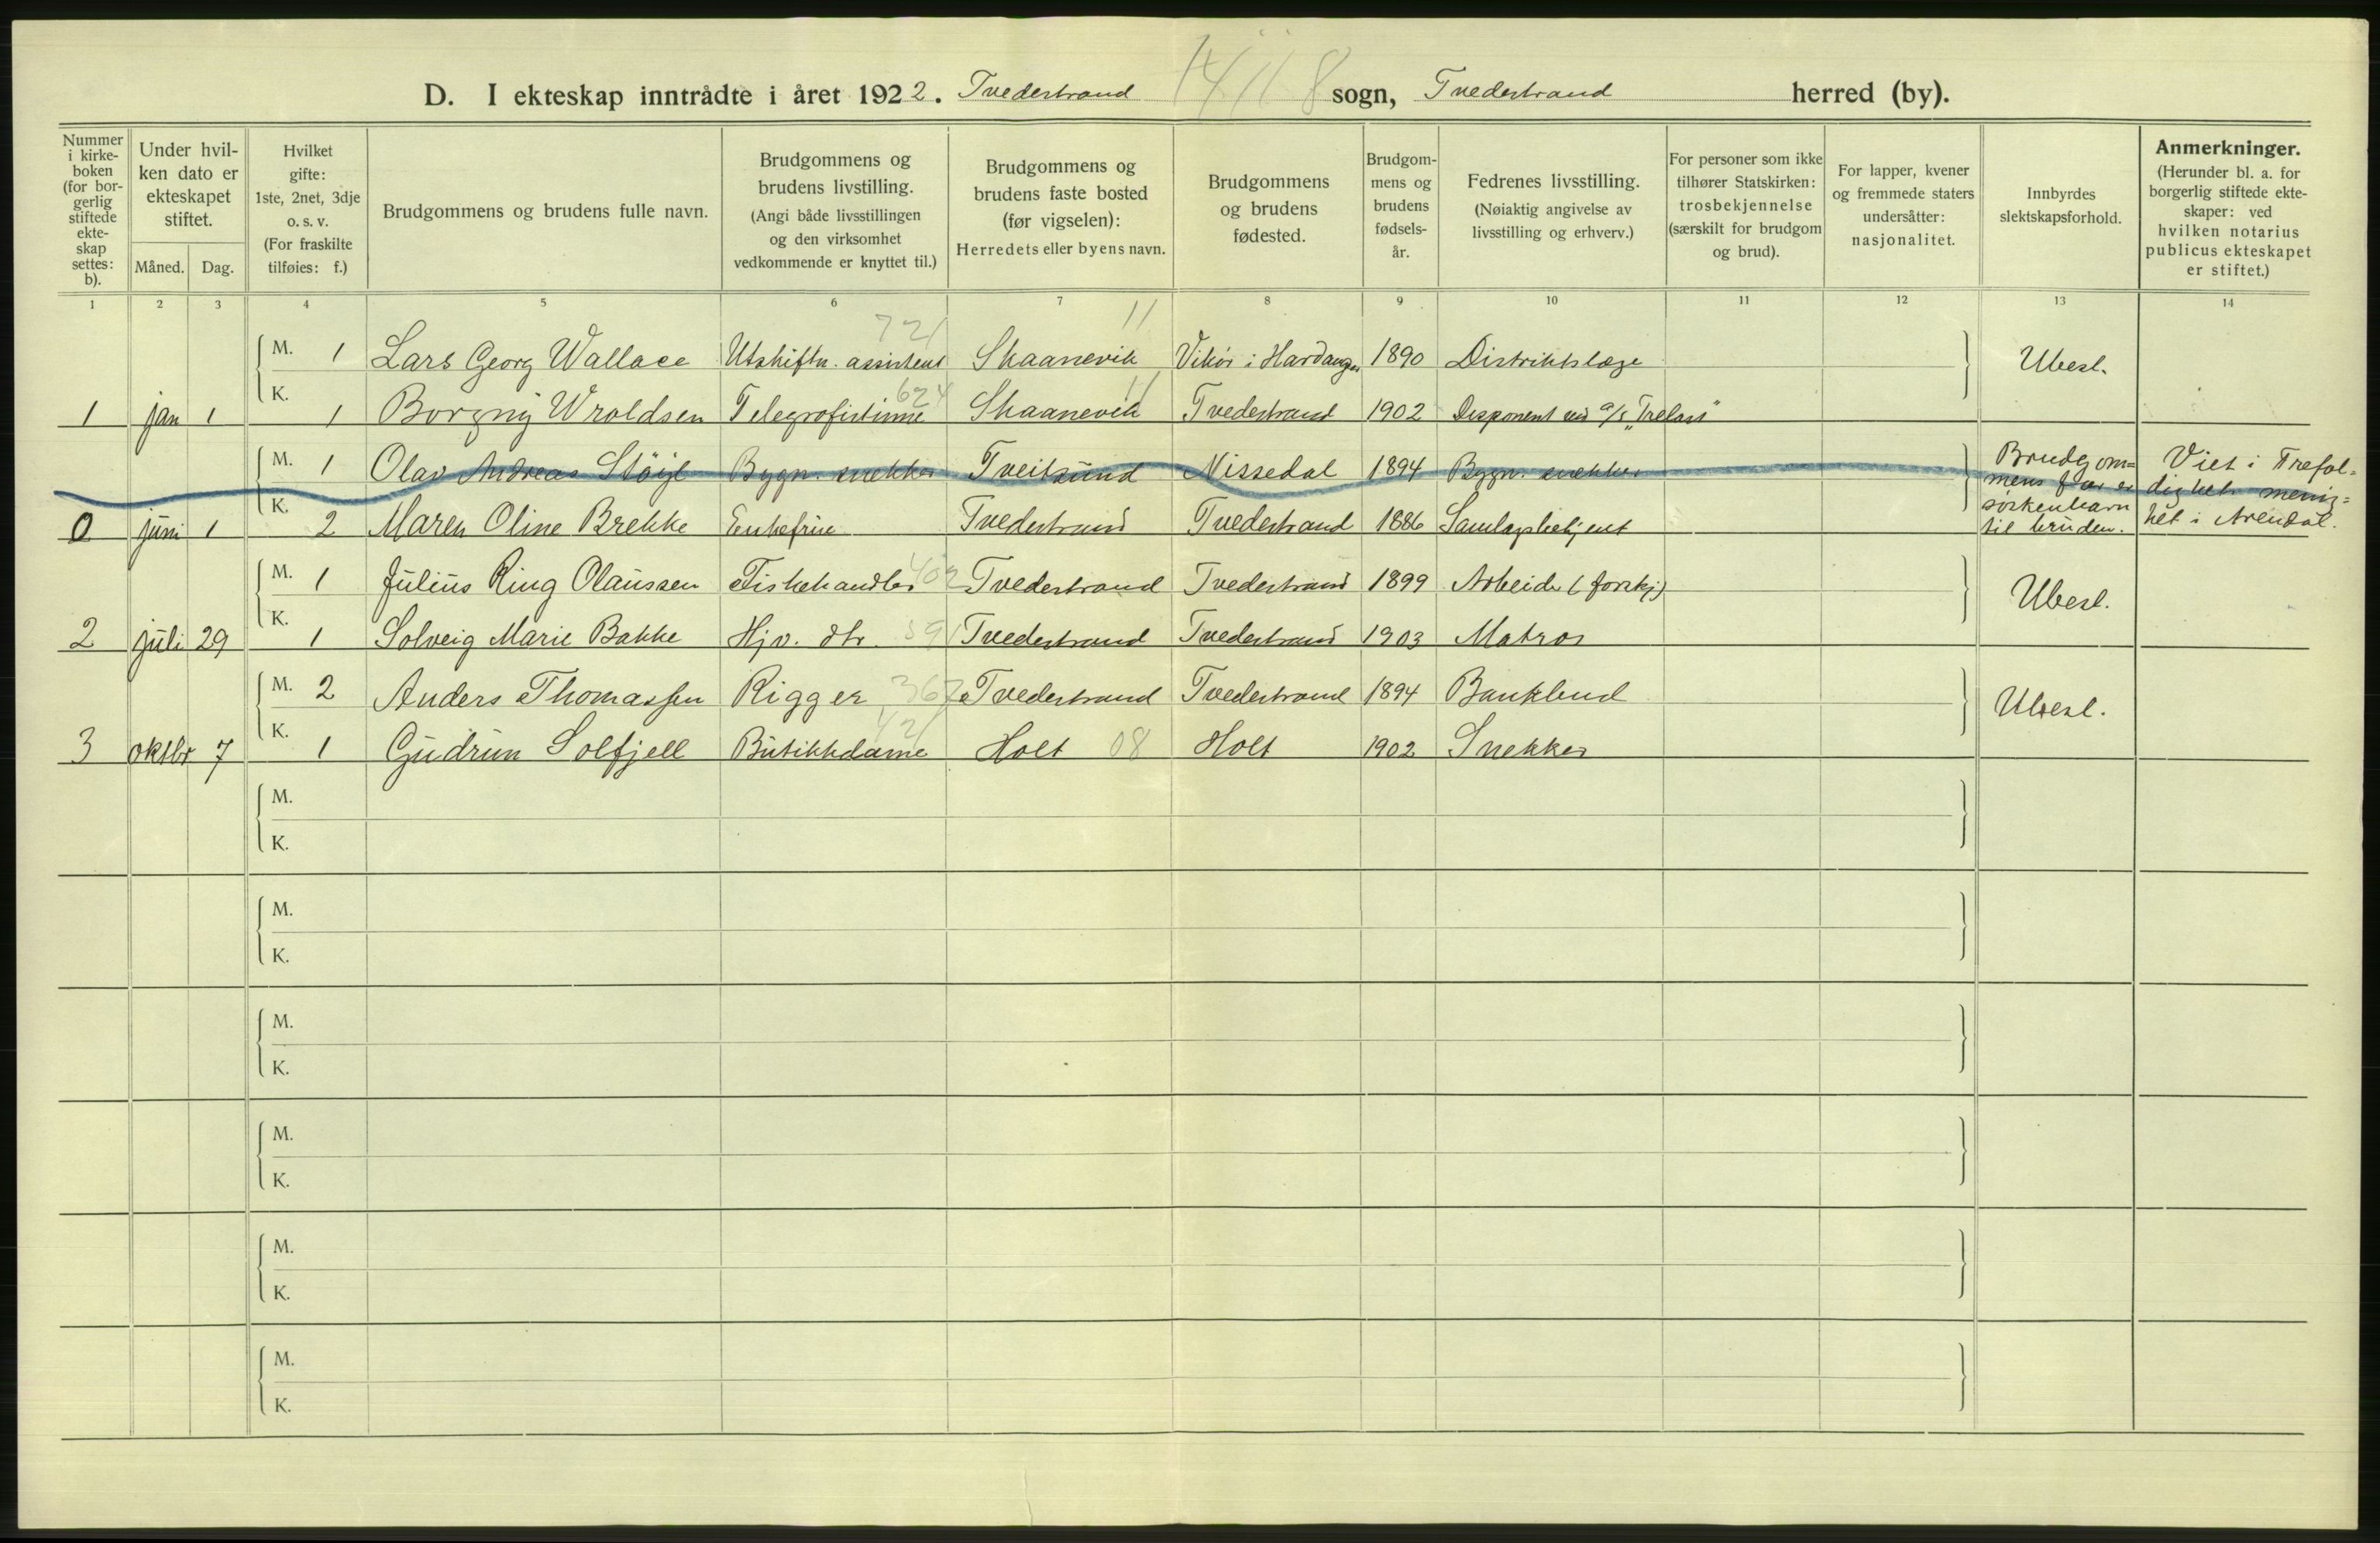 D. I ekteskap inntrådte i året 1922. Tvedestrand sogn, Tvedestrand herred (by).
Nummer i kirke-boken (for bor-gerlig stiftede ekte-skap settes: b).
Under hvil-ken dato er ekteskapet stiftet.
Måned. Dag.
Hvilket gifte: 1ste, 2net, 3dje o. s. v. (For fraskilte tilføies: f.)
Brudgommens og brudens fulle navn.
Brudgommens og brudens livstilling. (Angi både livsstillingen og den virksomhet vedkommende er knyttet til.)
Brudgommens og brudens faste bosted (før vigselen): Herredets eller byens navn.
Brudgommens og brudens fødested.
Brudgom-mens og brudens fødsels-år.
Fedrenes livsstilling. (Nøiaktig angivelse av livsstilling og erhverv.)
For personer som ikke tilhører Statskirken: trosbekjennelse (særskilt for brudgom og brud).
For lapper, kvener og fremmede staters undersåtter: nasjonalitet.
Innbyrdes slektskapsforhold.
Anmerkninger. (Herunder bl. a. for borgerlig stiftede ekte-skaper: ved hvilken notarius publicus ekteskapet er stiftet.)
1 2 3 4 5 6 7 8 9 10 11 12 13 14
721 11
M. 1 Lars Georg Wallace Utskiftn. assistent Skaanevik Vikør i Hardanger 1890 Distriktslæge Ubesl.
624 11
1 jan 1 K. 1 Borgny Wroldsen Telegrafistinne Skaanevik Tvedestrand 1902 Disponent ved a/s "Trelast"
M. 1 Olav Andreas Støyl Bygn. snekker Tveitsund Nissedal 1894 Bygn. snekker Brudgom=
mens far er
søskenbarn
til bruden.
Viet i Trefol=
dighet menig=
het i Arendal.
0 juni 1 K. 2 Maren Oline Brekke Enkefrue Tvedestrand Tvedestrand 1886 Samlagsbetjent
M. 1 Julius Ring Olaussen Fiskehandler 402 Tvedestrand Tvedestrand 1899 Arbeider (forskj) Ubesl.
2 juli 29 K. 1 Solveig Marie Bakke Hjv. dtr. 591 Tvedestrand Tvedestrand 1903 Matros
M. 2 Anders Thomassen Rigger 367 Tvedestrand Tvedestrand 1894 Bankbud Ubesl.
421
3 oktbr 7 K. 1 Gudrun Solfjell Butikkdame Holt 08 Holt 1902 Snekker
M.
K.
M.
K.
M.
K.
M.
K.
M.
K.
M.
K.